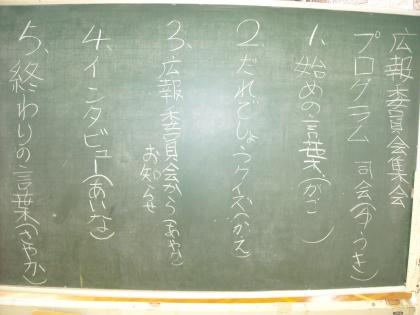 広報委員会集会
プログラム 司会(ゆうき)
1、始めの言葉(かご)
2、だれでしょうクイズ(かえ)
3、広報委員会から(あやか)
お知らせ
4、インタビュー(あいな)
5、終わりの言葉(さやか)